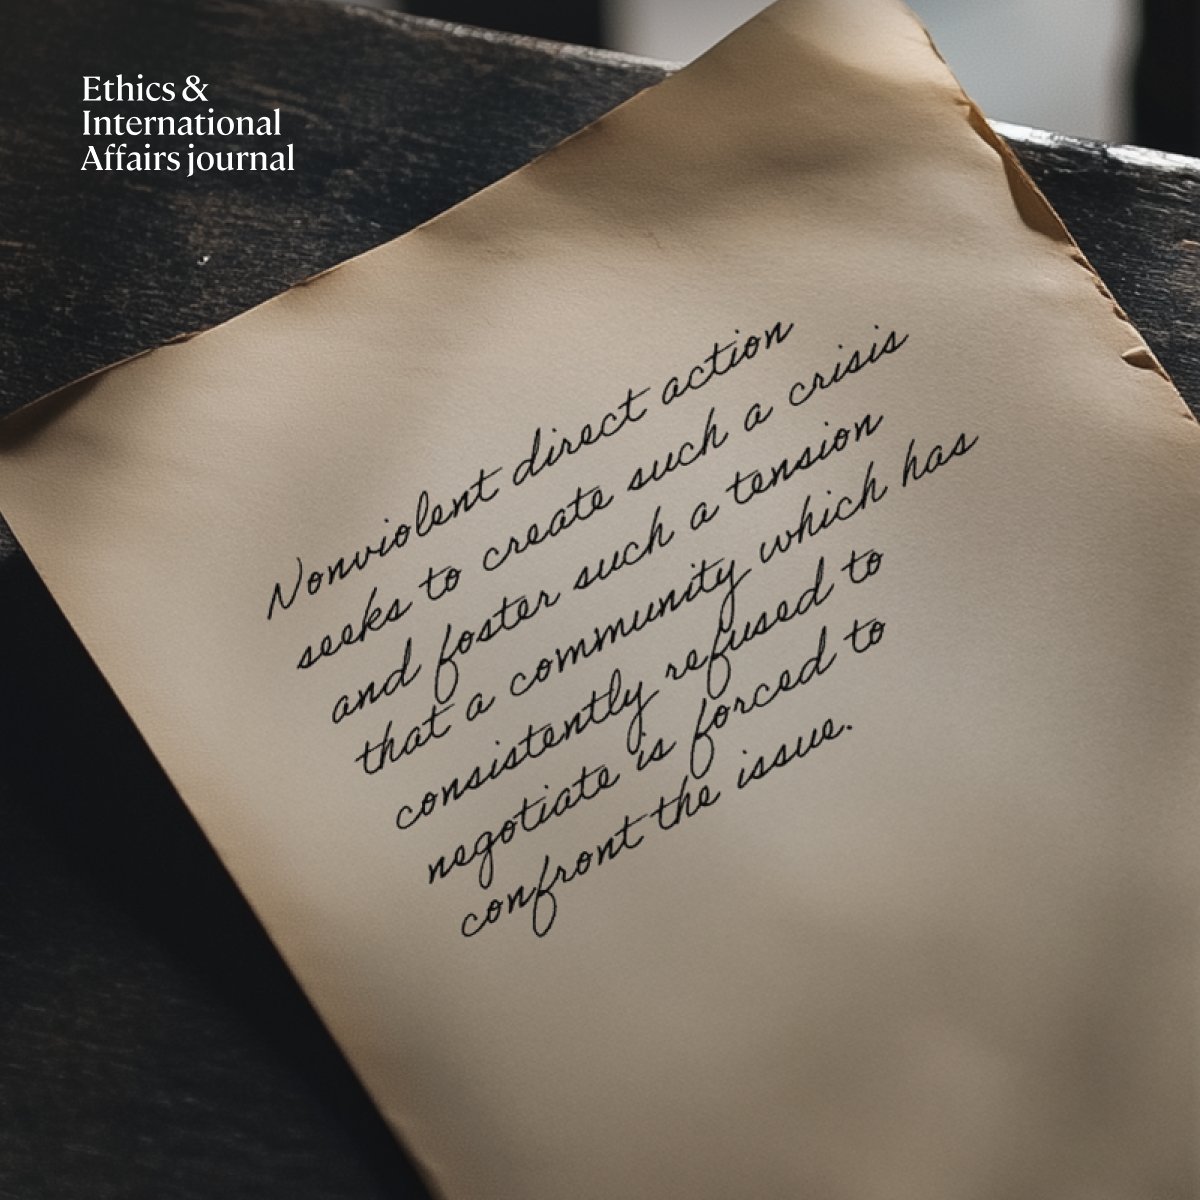 Ethics &
International
Affairs journal
Nonviolent direct action
seeks to create such a crisis
and foster such a tension
that a community which has
consistently refused to
negotiate is forced to
confront the issue.